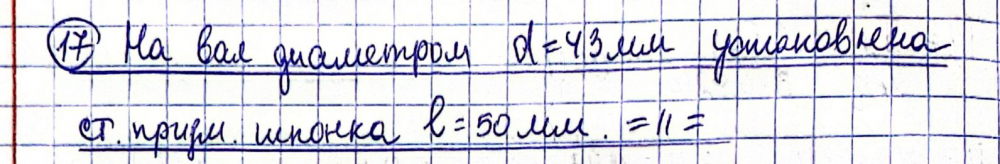 17 На вал диаметром d=43мм установлена
ст. призм. шпонка l=50мм. =//=